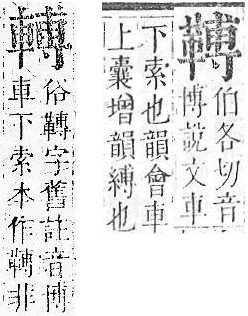 䩸
伯各切音
博說文車
下索也韻會車
上囊增韻縛也
俗䩸字舊註音博
車下索本作䩸非